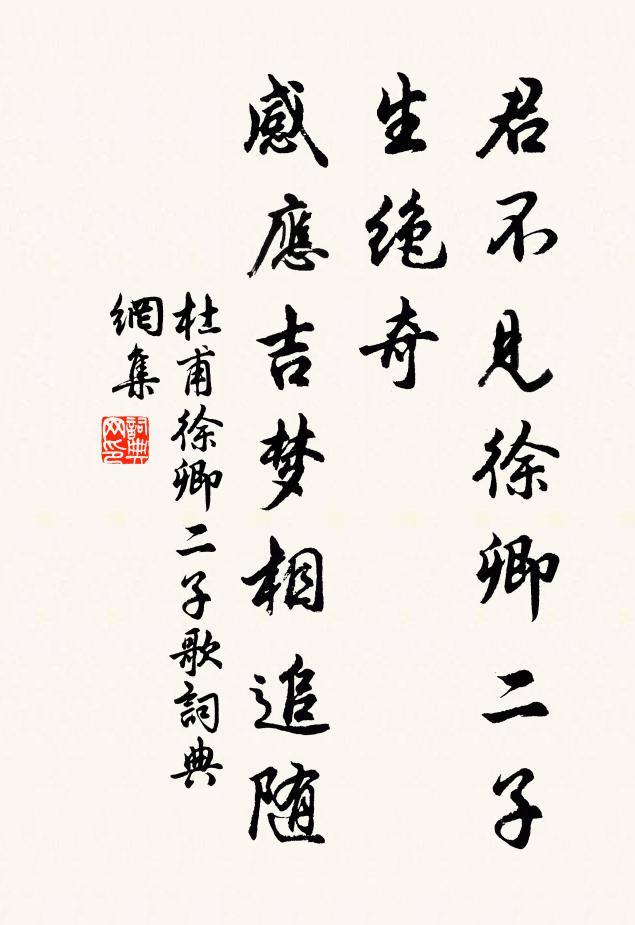 君不見徐卿二子
生絶奇
感應吉梦相追随
杜甫徐卿二子歌詞典
網集
詞典
网印